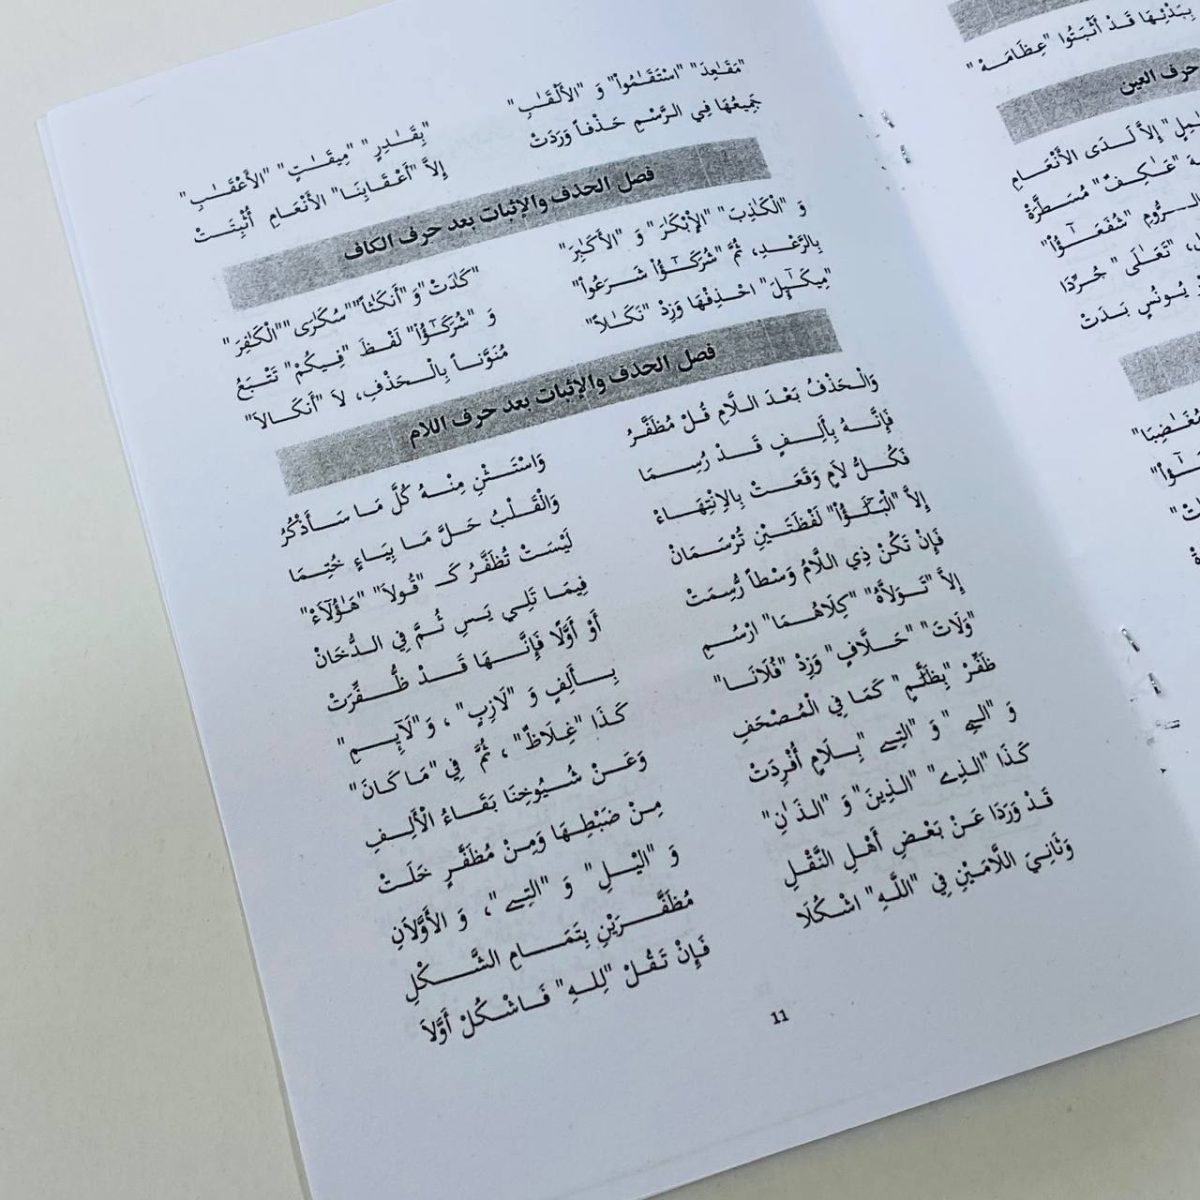 "مَقَٰعِدَ" "اسْتَقَٰمُواْ" وَ "الأَلْقَٰبِ" "بِقَٰدِرٍ" "مِيقَٰتٍ" "الأَعْقَٰبِ"
جَمِيعُهَا فِي الرَّسْمِ حَذْفاً وَرَدَتْ إِلاَّ "أَعْقَابِنَا" الأَنْعَامِ أُثْبِتَتْ
فصل الحذف والإثبات بعد حرف الكاف
وَ "الْكَٰذِبَ" "الإِبْكَٰرَ" وَ "الأَكَٰبِرَ" "كَٰدَتْ" وَ "أَنكَٰثاً" "سُكَٰرَى" "الْكَٰفِرَ"
بِالرَّعْدِ، ثُمَّ "شُرَكَٰٓؤُاْ شَرَعُواْ" وَ "شُرَكَٰٓؤُاْ" لَفْظَ "فِيكُمْ" تَتْبَعُ
"مِيكَٰٓئِلَ" احْذِفْهَا وَزِدْ "نَكَٰلاً" مُنَوَّناً بِالْحَذْفِ، لاَ "أَنكَالاَ"
فصل الحذف والإثبات بعد حرف اللام
وَالْحَذْفُ بَعْدَ اللَّامِ قُلْ مُظَفَّرُ وَاسْتَثْنِ مِنْهُ كُلَّ مَا سَأَذْكُرُ
فَإِنَّهُ بِأَلِفٍ قَدْ رُسِمَا وَالْقَلْبُ حَلَّ مَا بِيَاءٍ خُتِمَا
فَكُلُّ لاَمٍ وَقَعَتْ بِالاِنْتِهَاءْ لَيْسَتْ تُظَفَّرُ كَـ "قُولاَ" "هَٰؤُلَآءْ"
إِلاَّ "الْبَلَٰٓؤُاْ" لَفْظَتَيْنِ تُرْسَمَانْ فِيمَا تَلِي يَسِ ثُمَّ فِي الدُّخَانْ
فَإِنْ تَكُنْ ذِي اللَّامُ وَسْطاً رُسِمَتْ أَوْ أَوَّلًا فَإِنَّهَا قَدْ ظُفِّرَتْ
إِلاَّ "تَوَلاَّهُ" "كِلَاهُمَا" ارْسُمِ بِأَلِفٍ وَ "لَازِبٍ"، وَ "لَآئِمِ"
"وَلَاتَ" "حَلَّافٍ" وَزِدْ "فُلَانَا" كَذَا "غِلَاظٌ"، ثُمَّ فِي "مَا كَانَ"
ظَفِّرْ "بِظَلَّٰمٍ" كَمَا فِي الْمُصْحَفِ وَعَنْ شُيُوخِنَا بَقَاءُ الْأَلِفِ
وَ "الـِٕے" وَ "التِے" بِلَامٍ أُفْرِدَتْ مِنْ ضَبْطِهَا وَمِنْ مُظَفَّرٍ خَلَتْ
كَذَا "الذِے" "الذِينَ" وَ "الذَٰنِ" وَ "اليْلِ" وَ "التِے"، وَ الأَوَّلَانِ
قَدْ وَرَدَا عَنْ بَعْضِ أَهْلِ النَّقْلِ مُظَفَّرَيْنِ بِتَمَامِ الشَّكْلِ
وَثَانِيَ اللَّامَيْنِ فِي "اللَّهِ" اشْكُلَا فَإِنْ تَقُلْ "لِلهِ" فَاشْكُلْ أَوَّلاَ
11
بِبَدْئِهَا قَدْ أَثْبَتُوا "عِظَامَهْ"
حرف العين
إِلاَّ لَدَى الأَنْعَامِ
"عَٰكِفٌ" مُسَطَّرَةْ
الرُّومِ "شُفَعَٰٓؤُاْ"
"تَعَٰلَى" جُرِّدَا
يُونُسٍ بَدَتْ